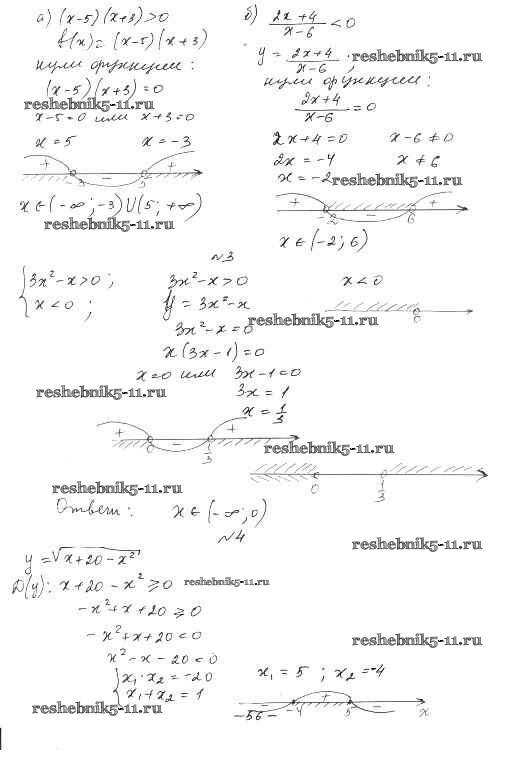 а) (x-5)(x+3)>0
f(x)=(x-5)(x+3)
нули функции:
(x-5)(x+3)=0
reshebnik5-11.ru
x-5=0 или x+3=0
x=5 x=-3
+ - +
-3 5
x∈(-∞;-3)∪(5;+∞)
reshebnik5-11.ru
б) (2x+4)/(x-6) <0
y= (2x+4)/(x-6);
reshebnik5-11.ru
нули функции:
(2x+4)/(x-6) =0
2x+4=0 x-6≠0
2x=-4 x≠6
x=-2
reshebnik5-11.ru
+ - +
-2 6
x∈(-2;6)
№3
{3x²-x>0; 3x²-x>0 x<0
{x<0; y=3x²-x
0
reshebnik5-11.ru
3x²-x=0
x(3x-1)=0
x=0 или 3x-1=0
reshebnik5-11.ru
3x=1
x=1/3
+ - +
0 1/3
reshebnik5-11.ru
0 1/3
reshebnik5-11.ru
Ответ: x∈(-∞;0)
№4
reshebnik5-11.ru
y=√(x+20-x²)
D(y): x+20-x²≥0
reshebnik5-11.ru
-x²+x+20≥0
-x²+x+20<0
reshebnik5-11.ru
x²-x-20<0
{x₁·x₂=-20 x₁=5; x₂=-4
{x₁+x₂=1
reshebnik5-11.ru
- + -
-4 5 x
-56-